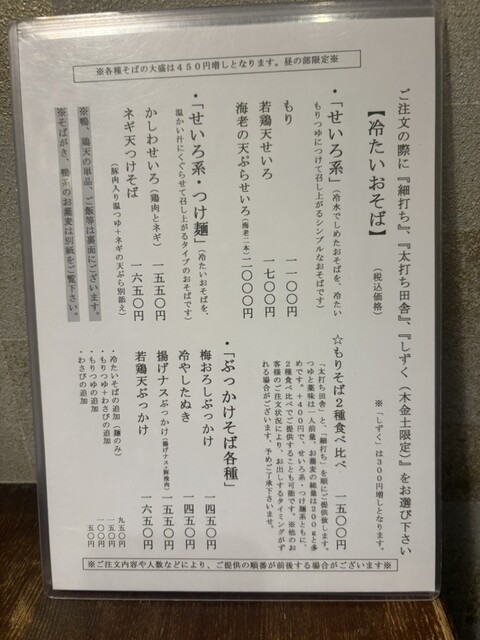 ※各種そばの大盛は４５０円増しとなります。昼の部限定※
ご注文の際に『細打ち』、『太打ち田舎』、『しずく（木金土限定）』をお選び下さい
※「しずく」は３００円増しとなります。
【冷たいおそば】
（税込価格）
・「せいろ系」（冷水でしめたおそばを、冷たい
もりつゆにつけて召し上がるシンプルなおそばです）
もり　一一〇〇円
若鶏天せいろ　一七〇〇円
海老の天ぷらせいろ（海老二本）二〇〇〇円
・「せいろ系・つけ麺」（冷たいおそばを、
温かい汁にくぐらせて召し上がるタイプのおそばです）
かしわせいろ（鶏肉とネギ）一五五〇円
ネギ天つけそば　一六五〇円
（豚肉入り温つゆ＋ネギの天ぷら別添え）
※鴨、鶏天の単品、ご飯等は裏面にございます。
※そばがき、鴨のお蕎麦は別紙をご覧下さい。
☆もりそば２種食べ比べ　一五〇〇円
「太打ち田舎」と、「細打ち」を順にご提供致します。
つゆと薬味は一人前量、お蕎麦の総量は２００ｇと多
めです。＋４００円で、せいろ系・つけ麺系ともに、
２種食べ比べでご提供することも可能です。※他のお
客様のご注文状況により、お出しするタイミングがず
れる場合がございます。予めご了承下さいませ。
・「ぶっかけそば各種」
梅おろしぶっかけ　一四五〇円
冷やしたぬき　一四五〇円
揚げナスぶっかけ（揚げナス・豚挽肉）一五五〇円
若鶏天ぶっかけ　一六五〇円
・冷たいそばの追加（麺のみ）　九五〇円
・もりつゆ＋わさびの追加　一五〇円
・もりつゆの追加　一〇〇円
・わさびの追加　五〇円
※ご注文内容や人数などにより、ご提供の順番が前後する場合がございます※